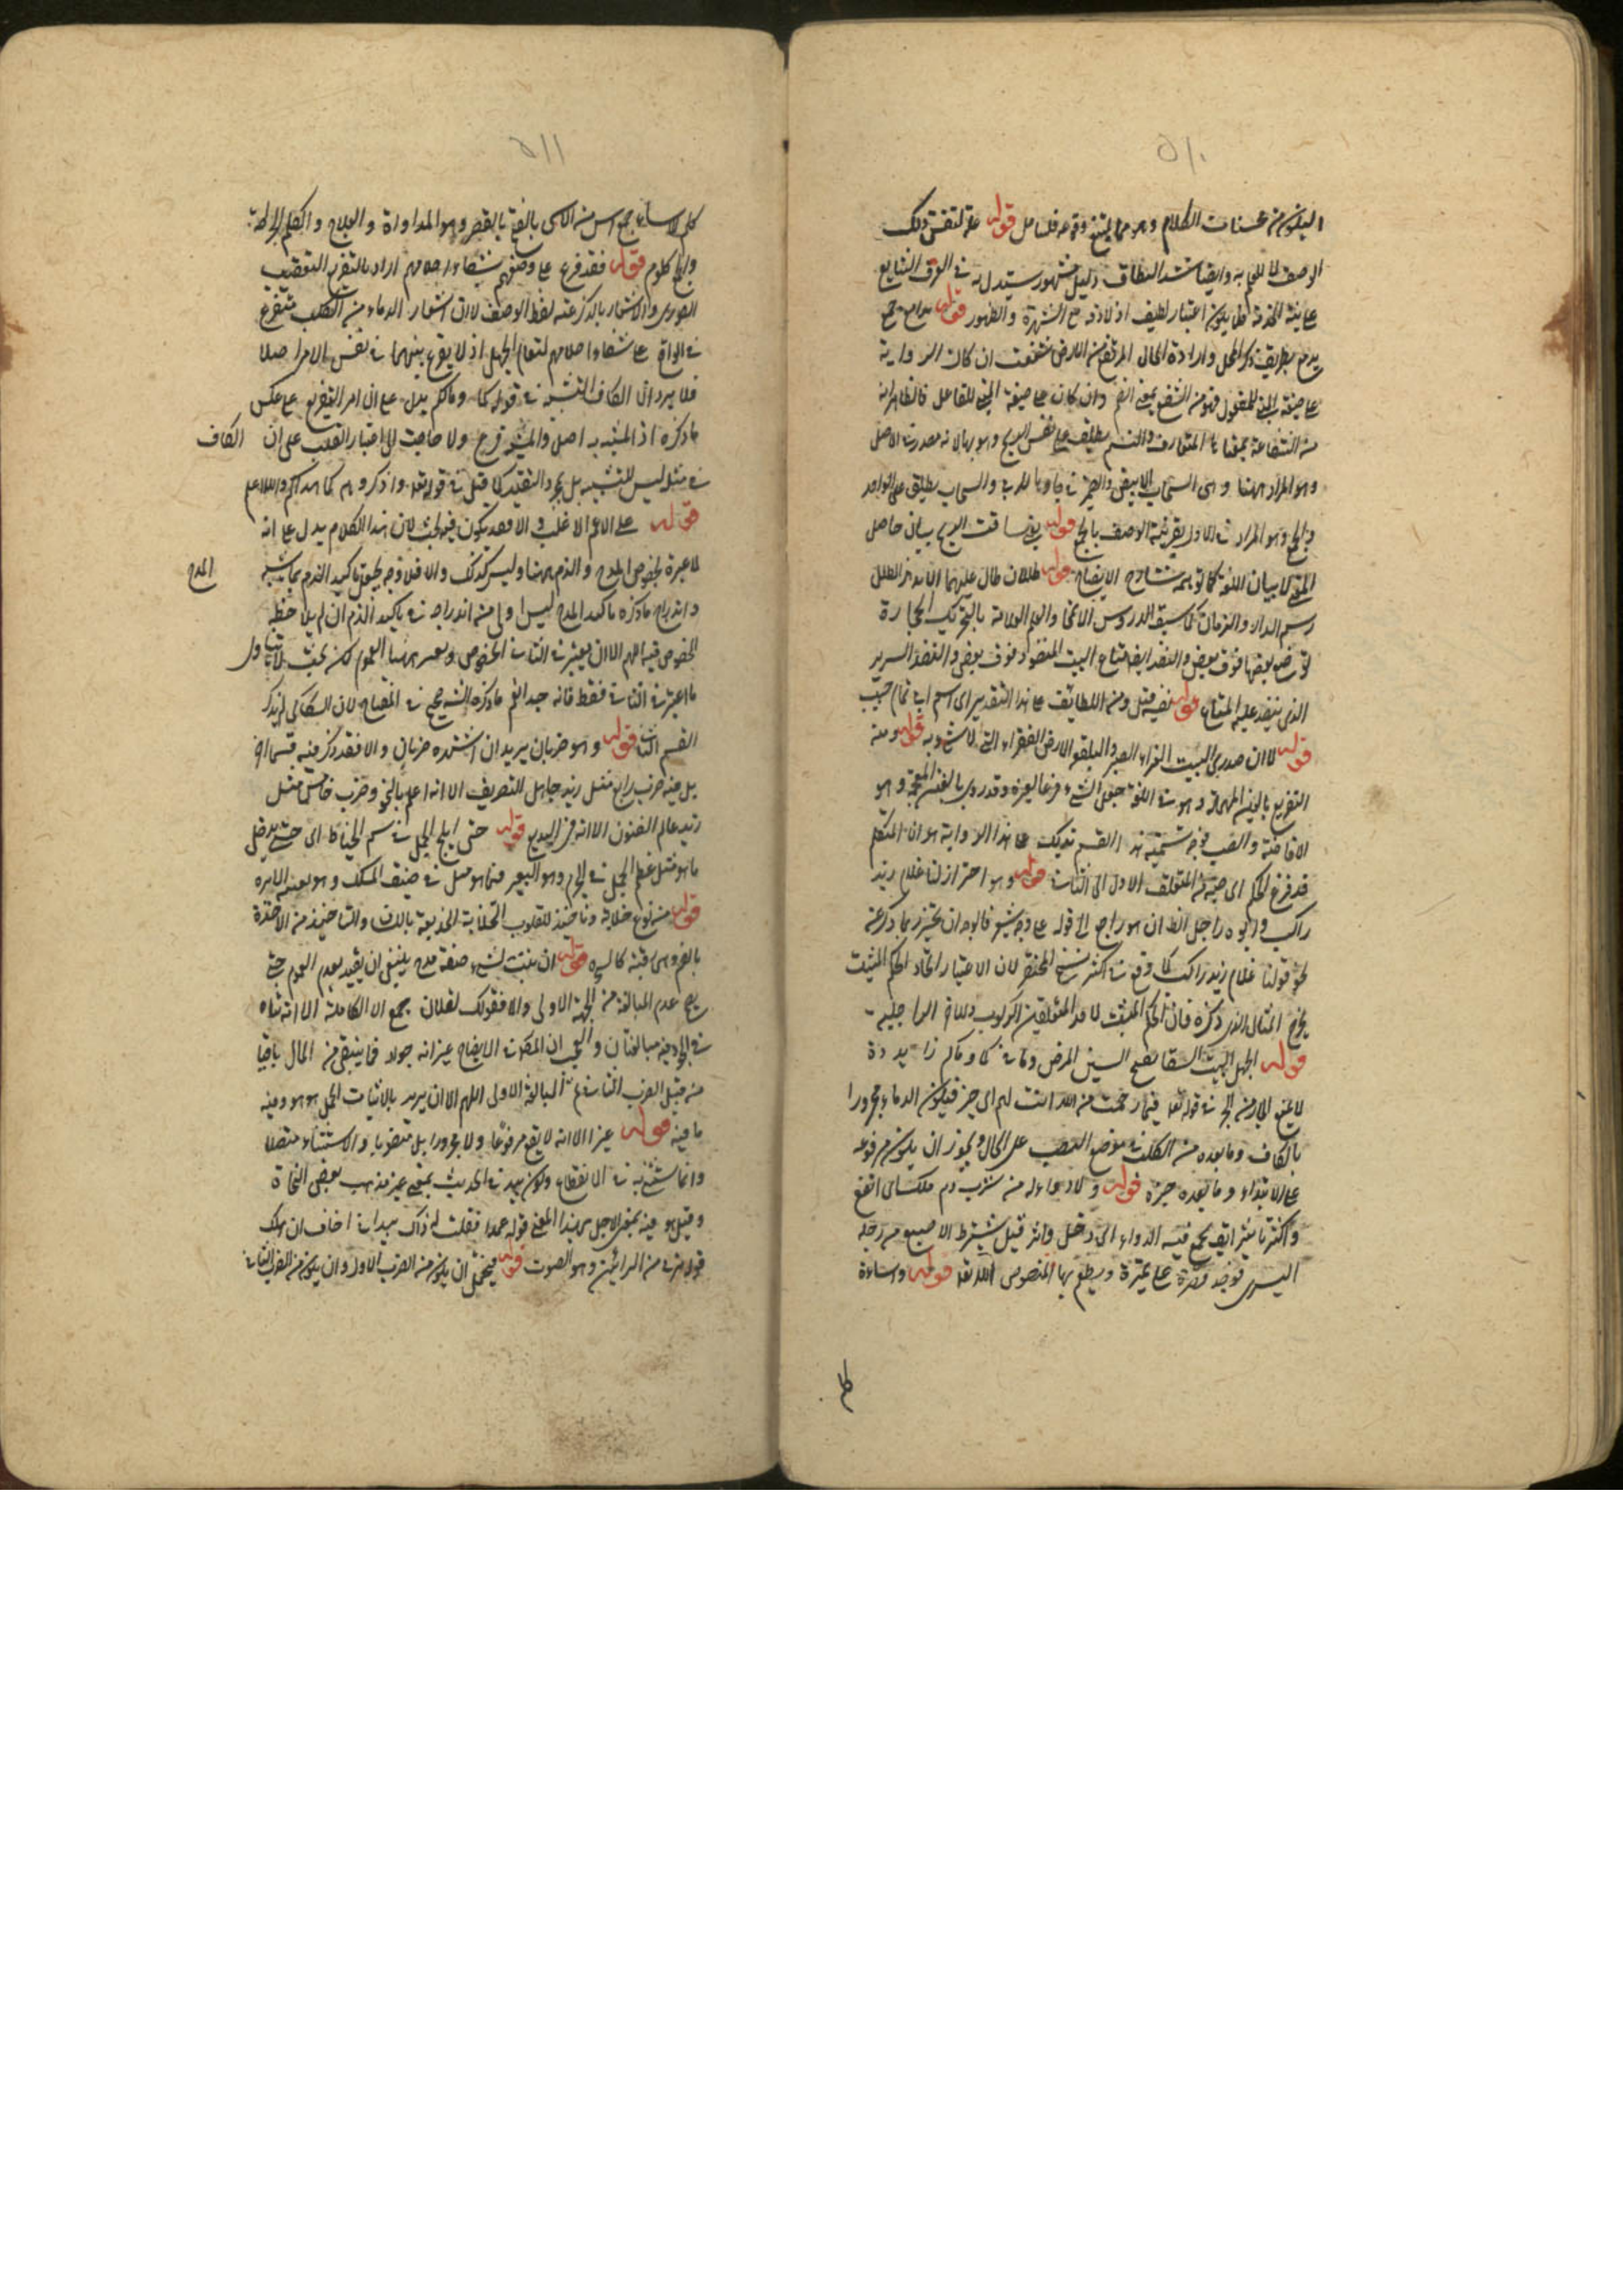 ٥١٠
البلغ من محسنات الكلام وهو مما يمتنع وقوعه فليتأمل قوله علة لتفسير ذلك
الوصف لا للعلم به وايضا شد النطاق دليل مشهور يستدل به في العرف الشايع
على نية الخدمة فلا يكون اعتبار لطيف اذ لا دقة مع الشهرة والظهور قوله جمع
بربح بطريق ذكر المحل وارادة الحال المرتفع من الارض شفعت ان كان الرواية
على صيغة المبني للمفعول فهو من الشفع بمعنى الضم وان كان على صيغة المبني للفاعل فالظاهر انه
من الشفاعة بمعناها المتعارف والنسيم يطلق على نفس الريح وهو بهالانه مصدر في الاصل
وهو المراد ههنا وهي السحاب الابيض والضمير في جاوبا للربى والسحاب يطلق على الواحد
والجمع وهو المراد في الاول بقرينة الوصف بالجمع قوله يعني ساقت الريح بيان حاصل
المعنى لا بيان اللغة كما توهمه شارح الايضاح قوله طللان طال عليهما الامد الطلل
رسم الدار والزمان كما سبق الدروس الامحاء والعلم العلامة بالتحريك الحجارة
توضع بعضها فوق بعض والنضد ايضا متاع البيت المنضود فوق بعض والنضد السرير
الذي ينضد عليه المتاع قوله نفيه قيل ومن اللطائف على هذا التقدير اي اسم ابي تمام حبيب
قوله لان صدري البيت الغراء الصبر والبلقع الارض القفراء التي لا شيء به قوله ومنه
التفريع بالعين المهملة وهو في اللغة جعل الشيء فرعا لغيره وقد روى بالغين المعجمة وهو
الافاضة والصب فوجه تسمية هذا القسم بذلك على هذا الرواية هو ان المتكلم
قد فرغ الحكم اي صبه من المتعلق الاول الى الثاني قوله وهو احتراز لنا غلام زيد
راكب وابوه راجل الظ ان هو راجع الى قوله على وجه يشعر فالوجه ان يحترز بما ذكر عن
نحو قولنا غلام زيد راكب كما وقع في اكثر نسخ المختصر لان الاعتبار اتحاد الحكم المثبت
يخرج المثال الذي ذكره فان الحكم المثبت لاحد المتعلقين الركوب وللاخر الراجلية
قوله الجهل البيت السقام بفتح السين المرض وما في كما وماكم زايدة
لا يمنع الجار من الجر في قوله تعالى فبما رحمة من الله لنت لهم الى خبر فيكون الدماء مجرورا
بالكاف وما بعده من الكلب في موضع النصب على الحال ويجوز ان يكون مرفوعة
على الابتداء وما بعده خبره قوله ولا دواء له من شرب دم ملك اي انفع
واكثر تأثيرا
اليسرى فيؤخذ قطرة على تمرة ويطعم بها المنصوص الله تعالى قوله واساءة
كلم
٥١١
كلم الاساءة جمع اس من الاسى بالفتح بالقصر وهو المداواة والعلاج والكلم الجراحة
والجمع كلوم قوله فقد فرع على وصفهم بشفاء احلامهم اراد بالتفريع التعقيب
الصوري والاشعار بالذكر عنه لفظ الوصف لا ان اشعار الدماء من الكلب متفرع
في الواقع على شفاء احلامهم لسقام الجهل اذ لا تفرع بينهما في نفس الامر اصلا
فلا يرد ان الكاف للتشبيه في قوله كما دماؤكم يدل على ان امر التفريع على عكس
ما ذكره اذ المشبه به اصل والمشبه فرع ولا حاجة الى اعتبار القلب على ان الكاف
في مثل ليس للتشبيه بل لمجرد التقييد كما قيل في قوله تعالى واذكروه كما هداكم والله اعلم
قوله على الاعم الاغلب والا فقد يكون فيه بحث لان هذا الكلام يدل على انه
لا عبرة لخصوص المدح والذم ههنا وليس كذلك والا فلا وجه لجعل تاكيد الذم بما يشبه المدح
واندراج ما ذكره تاكيد المدح ليس اولى من اندراجه في تاكيد الذم ان لم يلاحظ
الخصوص فيه اللهم الا ان يعتبر في الثاني الخصوص ويعتبر ههنا العموم لكن بحيث لا يتناول
ما اعتبر في الثاني فقط فانه جيد انعم ما ذكره الشيخ في المفتاح لان السكاكي لم يذكر
القسم الثاني قوله وهو ضربان يريد ان اشتهره ضربان والا فقد ذكر فيه قسما اخر
بل فيه ضرب رابع مثل زيد جاهل للتصريف الا انه اعلم بالنحو وضرب خامس مثل
زيد عالم الفنون الا انه في البديع قوله حتى يلج الجمل في سم الخياط اي حتى يدخل
ما هو مثل عظم الجمل في الجرم وهو البعير فيما هو مثل في ضيق المسلك وهو ثقبة الابرة
قوله من نوع خلابة وتاخيذ للقلوب الخلابة الخديعة باللسان والتاخيذ من الاخذة
بالضم وهي رقية كالسحر قوله ان يثبت لشيء صفة مدح ينبغي ان يقيد بعدم العموم حتى
يصح عدم المبالغة من الجهة الاولى والا فقولك لفلان جميع الا الكاملة الا انه تناه
في الجود فيه مبالغتان والعجب ان المص في الايضاح غير انه جواد فما يبقى من المال باقيا
من قبيل الضرب الثاني مع المبالغة الاولى اللهم الا ان يريد بالاثبات المجمل هو هو وفيه
ما فيه قوله غير الا انه لا يقع مرفوعا ولا مجرورا بل منصوبا والاستثناء متصلا
وانما يستثنى به في الانقطاع وكون بيد في الحديث بمعنى غير مذهب بعض النحاة
وقيل هو فيه بمعنى لاجل من هذا المعنى قوله عمدا فعلت ذاك بيد اني اخاف ان هلك
قوله ترني من الرانين وهو الصوت قوله فيحتمل ان يكون من الضرب الاول وان يكون من الضرب الثاني